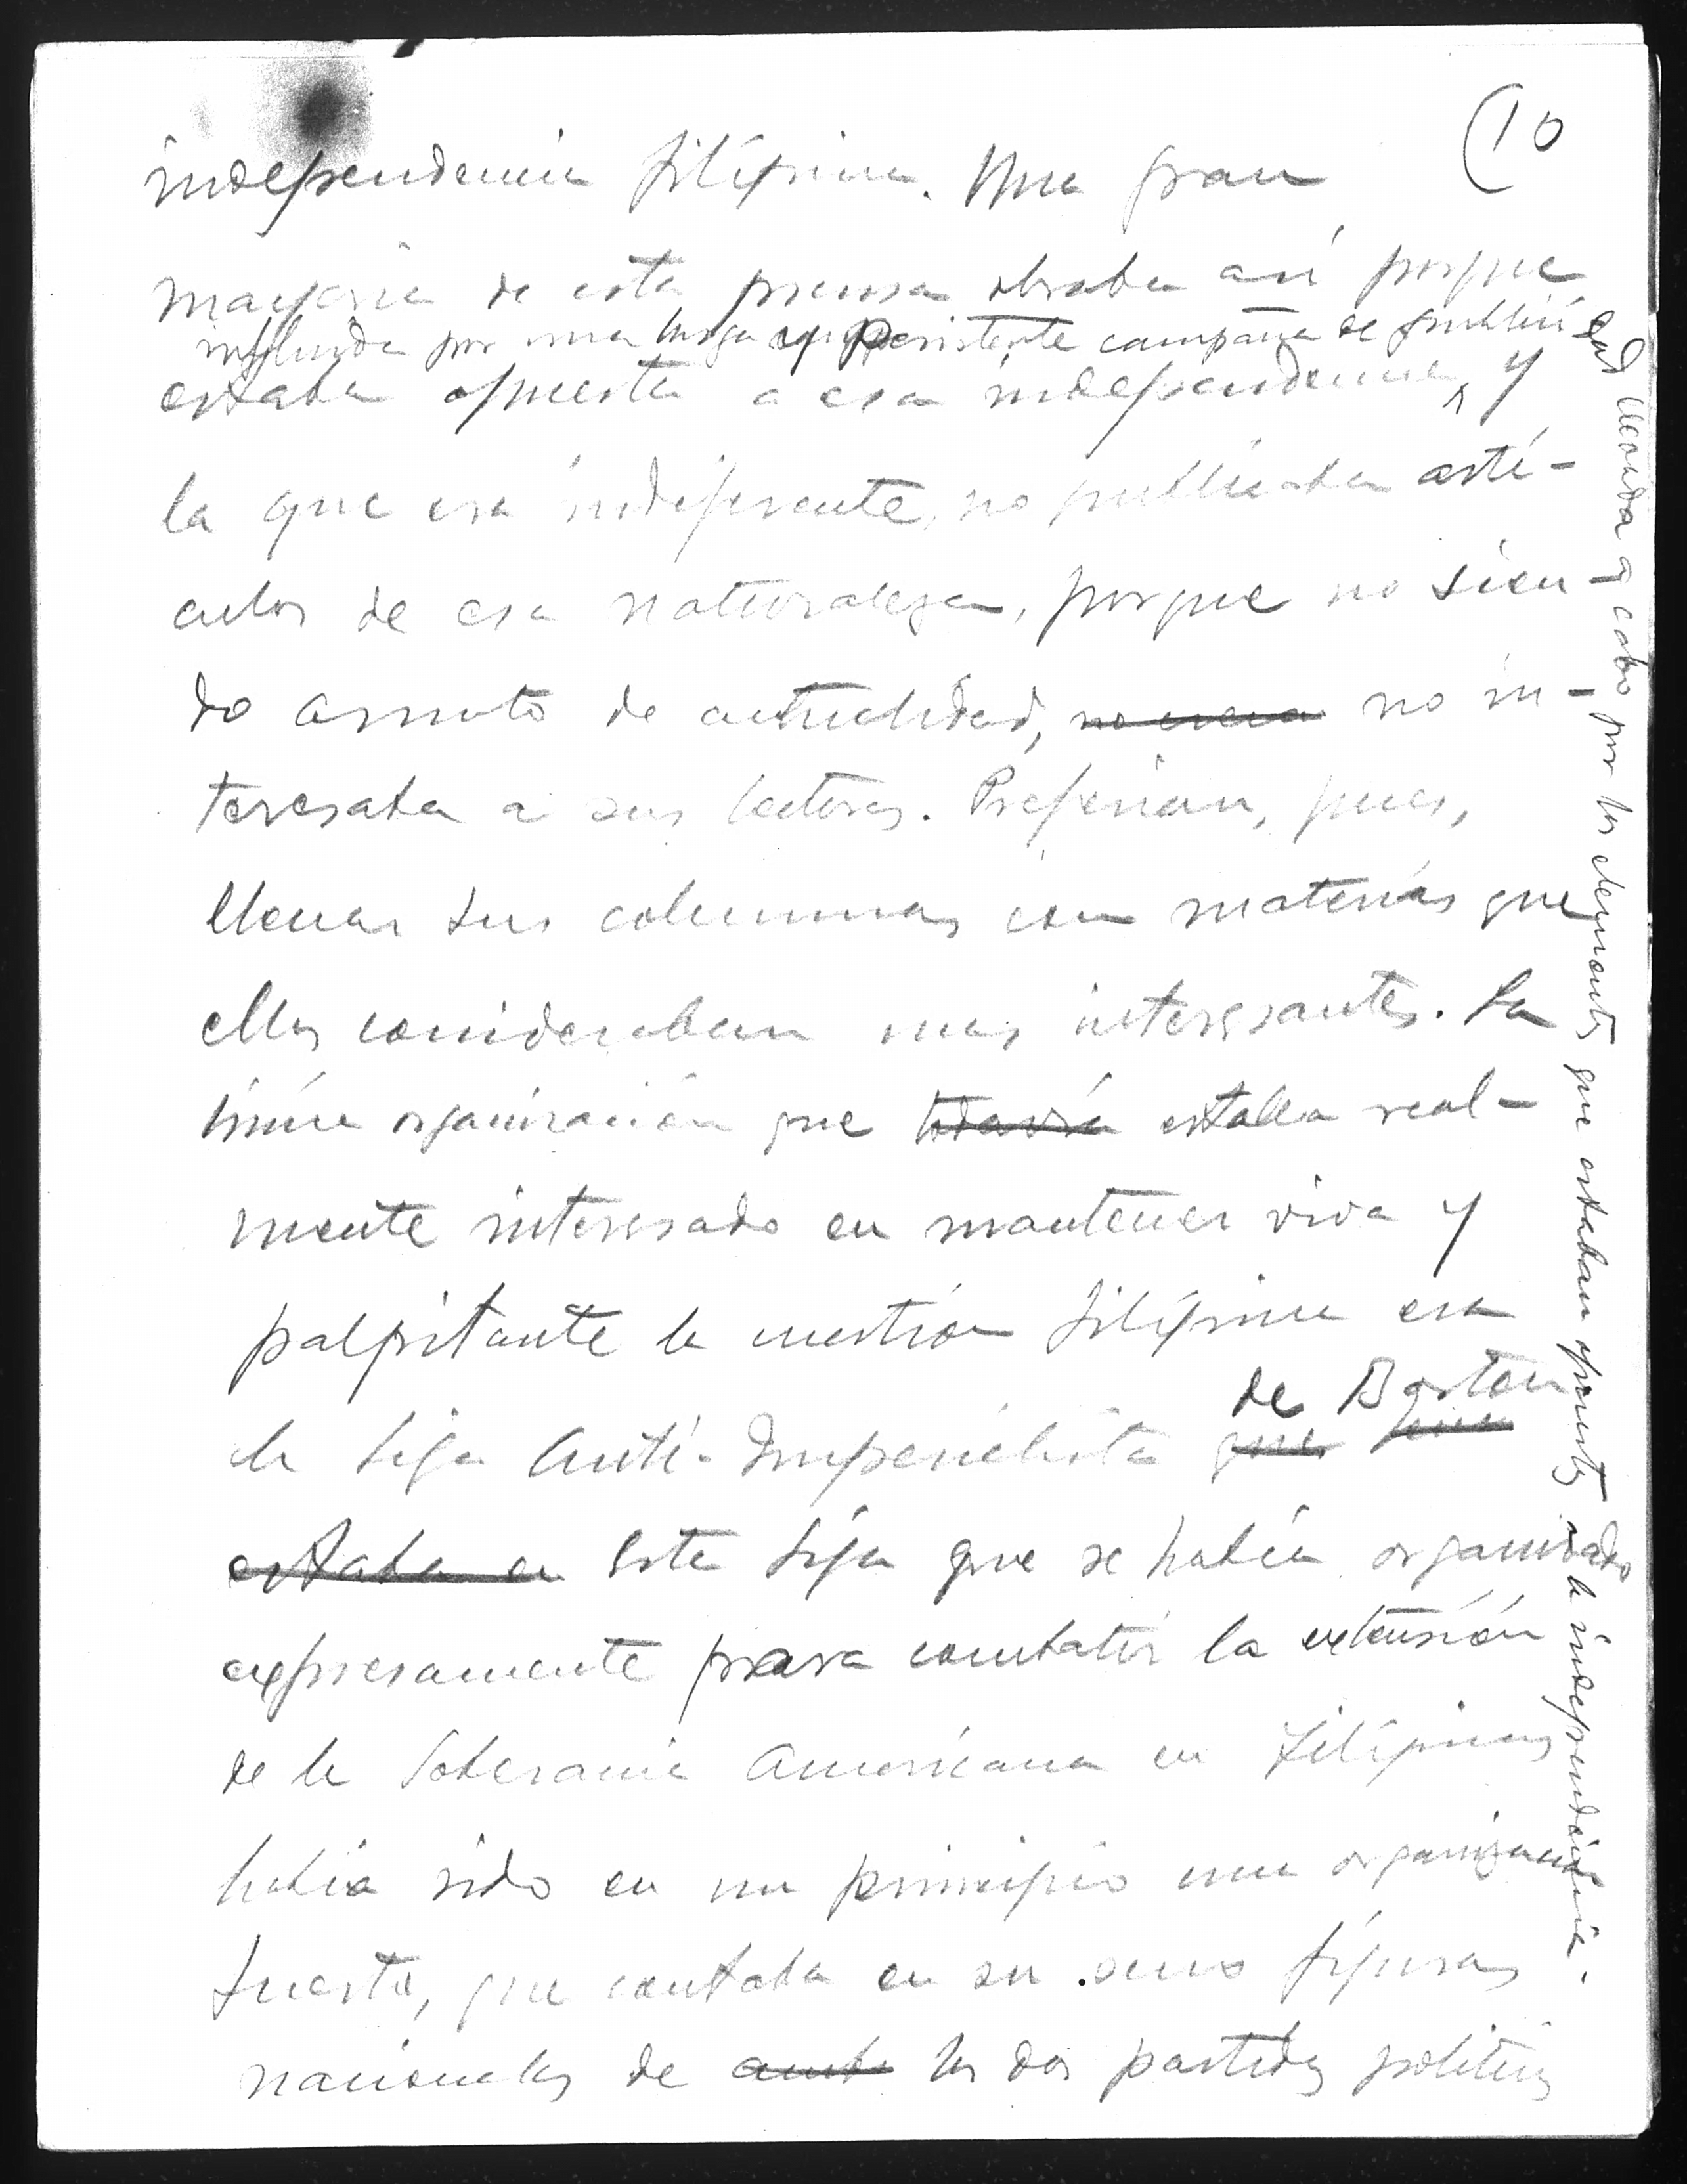 (10
independencia filipina. Una gran
mayoria de esta prensa obraba así porque
influida por una larga y persistente campaña de publici
estaba opuesta a esa independencia, y
la que era indiferente, no publicaba artí-
culos de esa naturaleza, porque no sien-
do asunto de actualidad, no no in-
teresaba a sus lectores. Preferian, pues,
llenar sus columnas con materias que
ellos consideraban mas interesantes. La
única organización que todavía estaba real-
mente interesado en mantener viva y
palpitante la cuestión filipina era
de Boston
la Liga Anti-Imperialista que
estaba en Esta Liga que se había organizado
expresamente para combatir la extensión
de la Soberania Americana en Filipinas
había sido en un principio una organización
fuerte, que contaba en su seno figuras
nacionales de amb los dos partidos politicos
dad llevada a cabo por los elementos que estaban opuestos a la independencia.